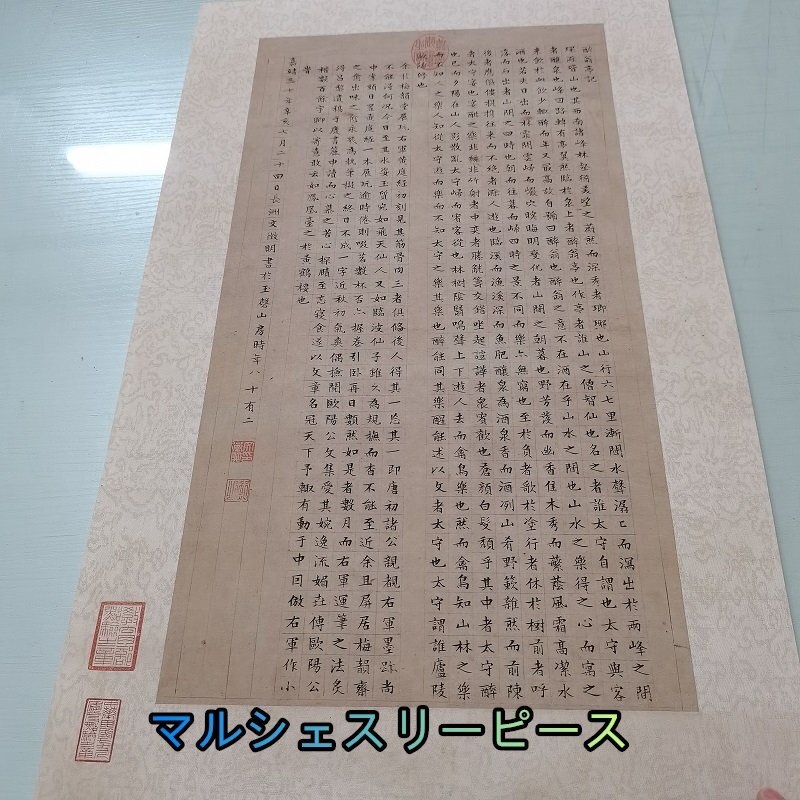 醉翁亭記
環滁皆山也其西南諸峰林壑尤美望之蔚然而深秀者瑯琊也山行六七里漸聞水聲潺〻而瀉出於兩峰之間
者釀泉也峰回路轉有亭翼然臨於泉上者醉翁亭也作亭者誰山之僧智仙也名之者誰太守自謂也太守與客
來飲於此飲少輒醉而年又最高故自號曰醉翁也醉翁之意不在酒在乎山水之間也山水之樂得之心而寓之
酒也若夫日出而林霏開雲歸而巖穴暝晦明變化者山間之朝暮也野芳發而幽香佳木秀而蘩蔭風霜高潔水
落而石出者山間之四時也朝而往暮而歸四時之景不同而樂亦無窮也至於負者歌於塗行者休於樹前者呼
後者應傴僂提攜往來而不絕者滁人遊也臨溪而漁溪深而魚肥釀泉為酒泉香而酒冽山肴野蔌雜然而前陳
者太守宴也宴酣之樂非絲非竹射者中奕者勝觥籌交錯坐起諠譁者衆賓歡也蒼顏白髮頹乎其中者太守醉
也已而夕陽在山人影散亂太守歸而賓客從也林樹陰翳鳴聲上下遊人去而禽鳥樂也然而禽鳥知山林之樂
而不知人之樂人知從太守遊而樂而不知太守之樂其樂也醉能同其樂醒能述以文者太守也太守謂誰廬陵
歐陽修也
余於梅韻堂展玩右軍黃庭經初刻見其筋骨肉三者俱備後人得其一忘其一即唐初諸公親覩右軍墨跡尚
不能得何況今日至其水姿玉質宛如飛天仙人又如臨波仙子雖久為規撫而杳不能至近余且屏居梅韻齋
中日置黃庭經一本展玩逾時倦則啜茗數杯握卷引卧再日數然如是者數月而右軍運筆之法炙
之愈出味之愈永執筆擬之終日不成一字近秋初氣爽偶撿閱歐陽公文集愛其婉逸流媚傳歐陽公
得昌黎遺稿于廢書簏中讀而心慕之苦心探賾至忘寢食遂以文章名冠天下予輙有動于中因倣右軍作小
楷數百餘字聊以寄意敢云如鳳凰臺之於黃鶴樓也
嘉靖三十年辛亥七月二十四日長洲文徵明書於玉磬山房時年八十有二
マルシェスリーピース